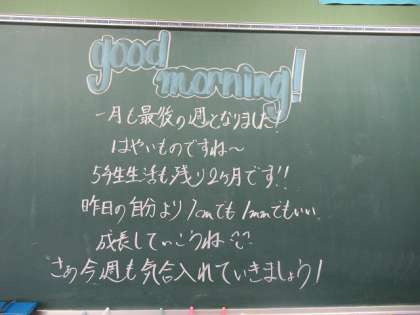 good
morning!
一月も最後の週となりました!
はやいものですね〜
5年生生活も残り2ヶ月です!!
昨日の自分より1cmでも1mmでもいい
成長していこうね
さあ今週も気合入れていきましょう!